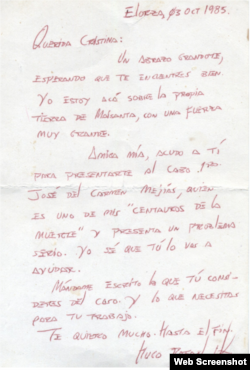 Elorza, 03 OCT 1985.
Querida Cristina:
Un abrazo gigante,
esperando que te encuentres bien.
Yo estoy acá sobre la propia
tierra de Maisanta, con una fuerza
muy grande.
Amiga mía, acudo a tí
para presentarte al Cabo 1ro.
José del Carmen Mejías, quien
es uno de mis "Centauros de la
muerte" y presenta un problema
serio. Yo sé que tú lo vas a
ayudar.
Mándame escrito lo que tú consi-
deres del caso. Y lo que necesites
para tu trabajo.
Te quiero mucho. Hasta el fin.
Hugo
Web Screenshot